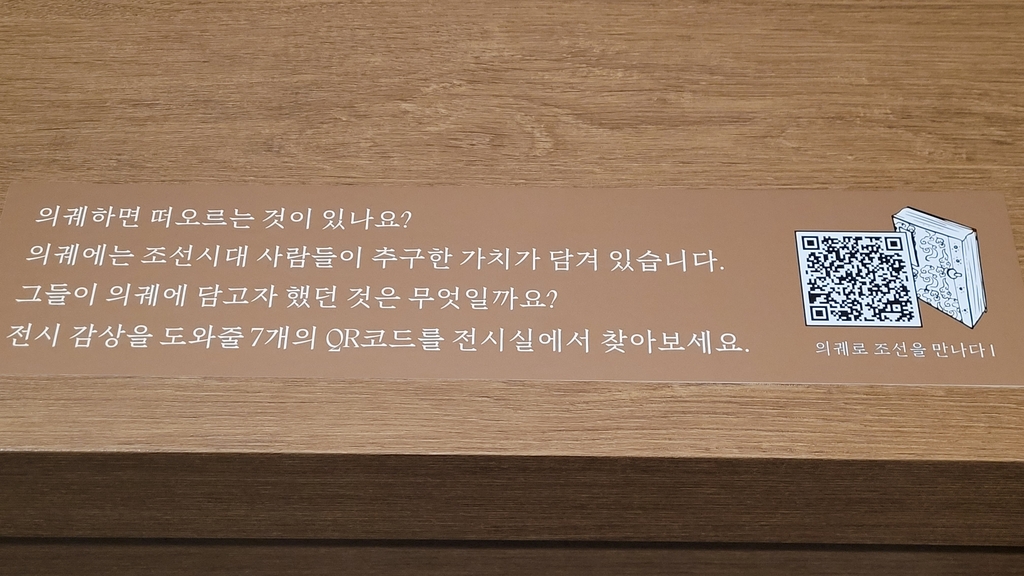 의궤하면 떠오르는 것이 있나요?
의궤에는 조선시대 사람들이 추구한 가치가 담겨 있습니다.
그들이 의궤에 담고자 했던 것은 무엇일까요?
전시 감상을 도와줄 7개의 QR코드를 전시실에서 찾아보세요.
의궤로 조선을 만나다 I